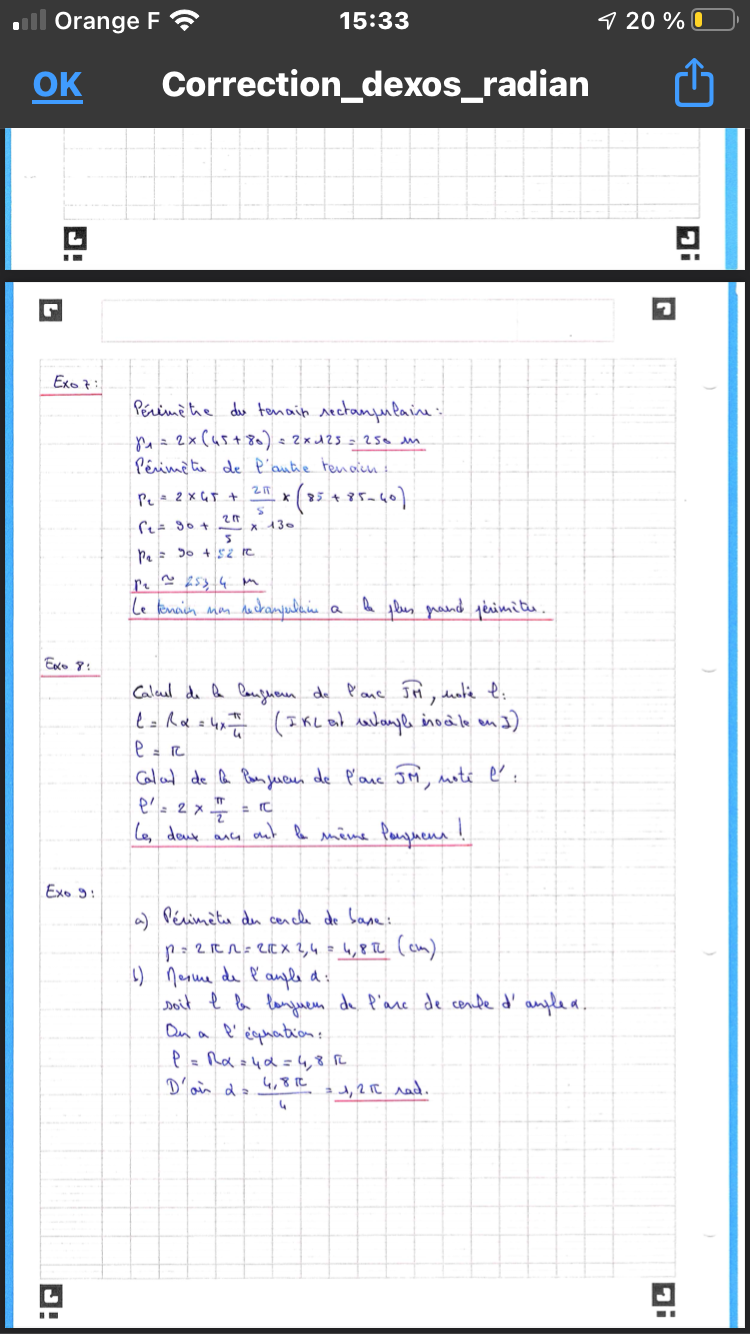 Orange F 15:33 20 %
OK Correction_dexos_radian
Exo 7:
Périmètre du terrain rectangulaire:
p₁ = 2×(45+80) = 2×125 = 250 m
Périmètre de l'autre terrain:
p₂ = 2×45 + 2π/5 × (85+85-40)
p₂ = 90 + 2π/5 × 130
p₂ = 90 + 52π
p₂ ≃ 253,4 m
Le terrain non rectangulaire a le plus grand périmètre.
Exo 8:
Calcul de la longueur de l'arc JM, noté ℓ:
ℓ = Rα = 4×π/4 (IKL est rectangle isocèle en I)
ℓ = π
Calcul de la longueur de l'arc JM, noté ℓ':
ℓ' = 2 × π/2 = π
Les deux arcs ont la même longueur !
Exo 9:
a) Périmètre du cercle de base:
p = 2πr = 2π×2,4 = 4,8π (cm)
b) Mesure de l'angle α:
soit ℓ la longueur de l'arc de cercle d'angle α.
On a l'équation:
ℓ = Rα = 4α = 4,8π
D'où α = 4,8π/4 = 1,2π rad.